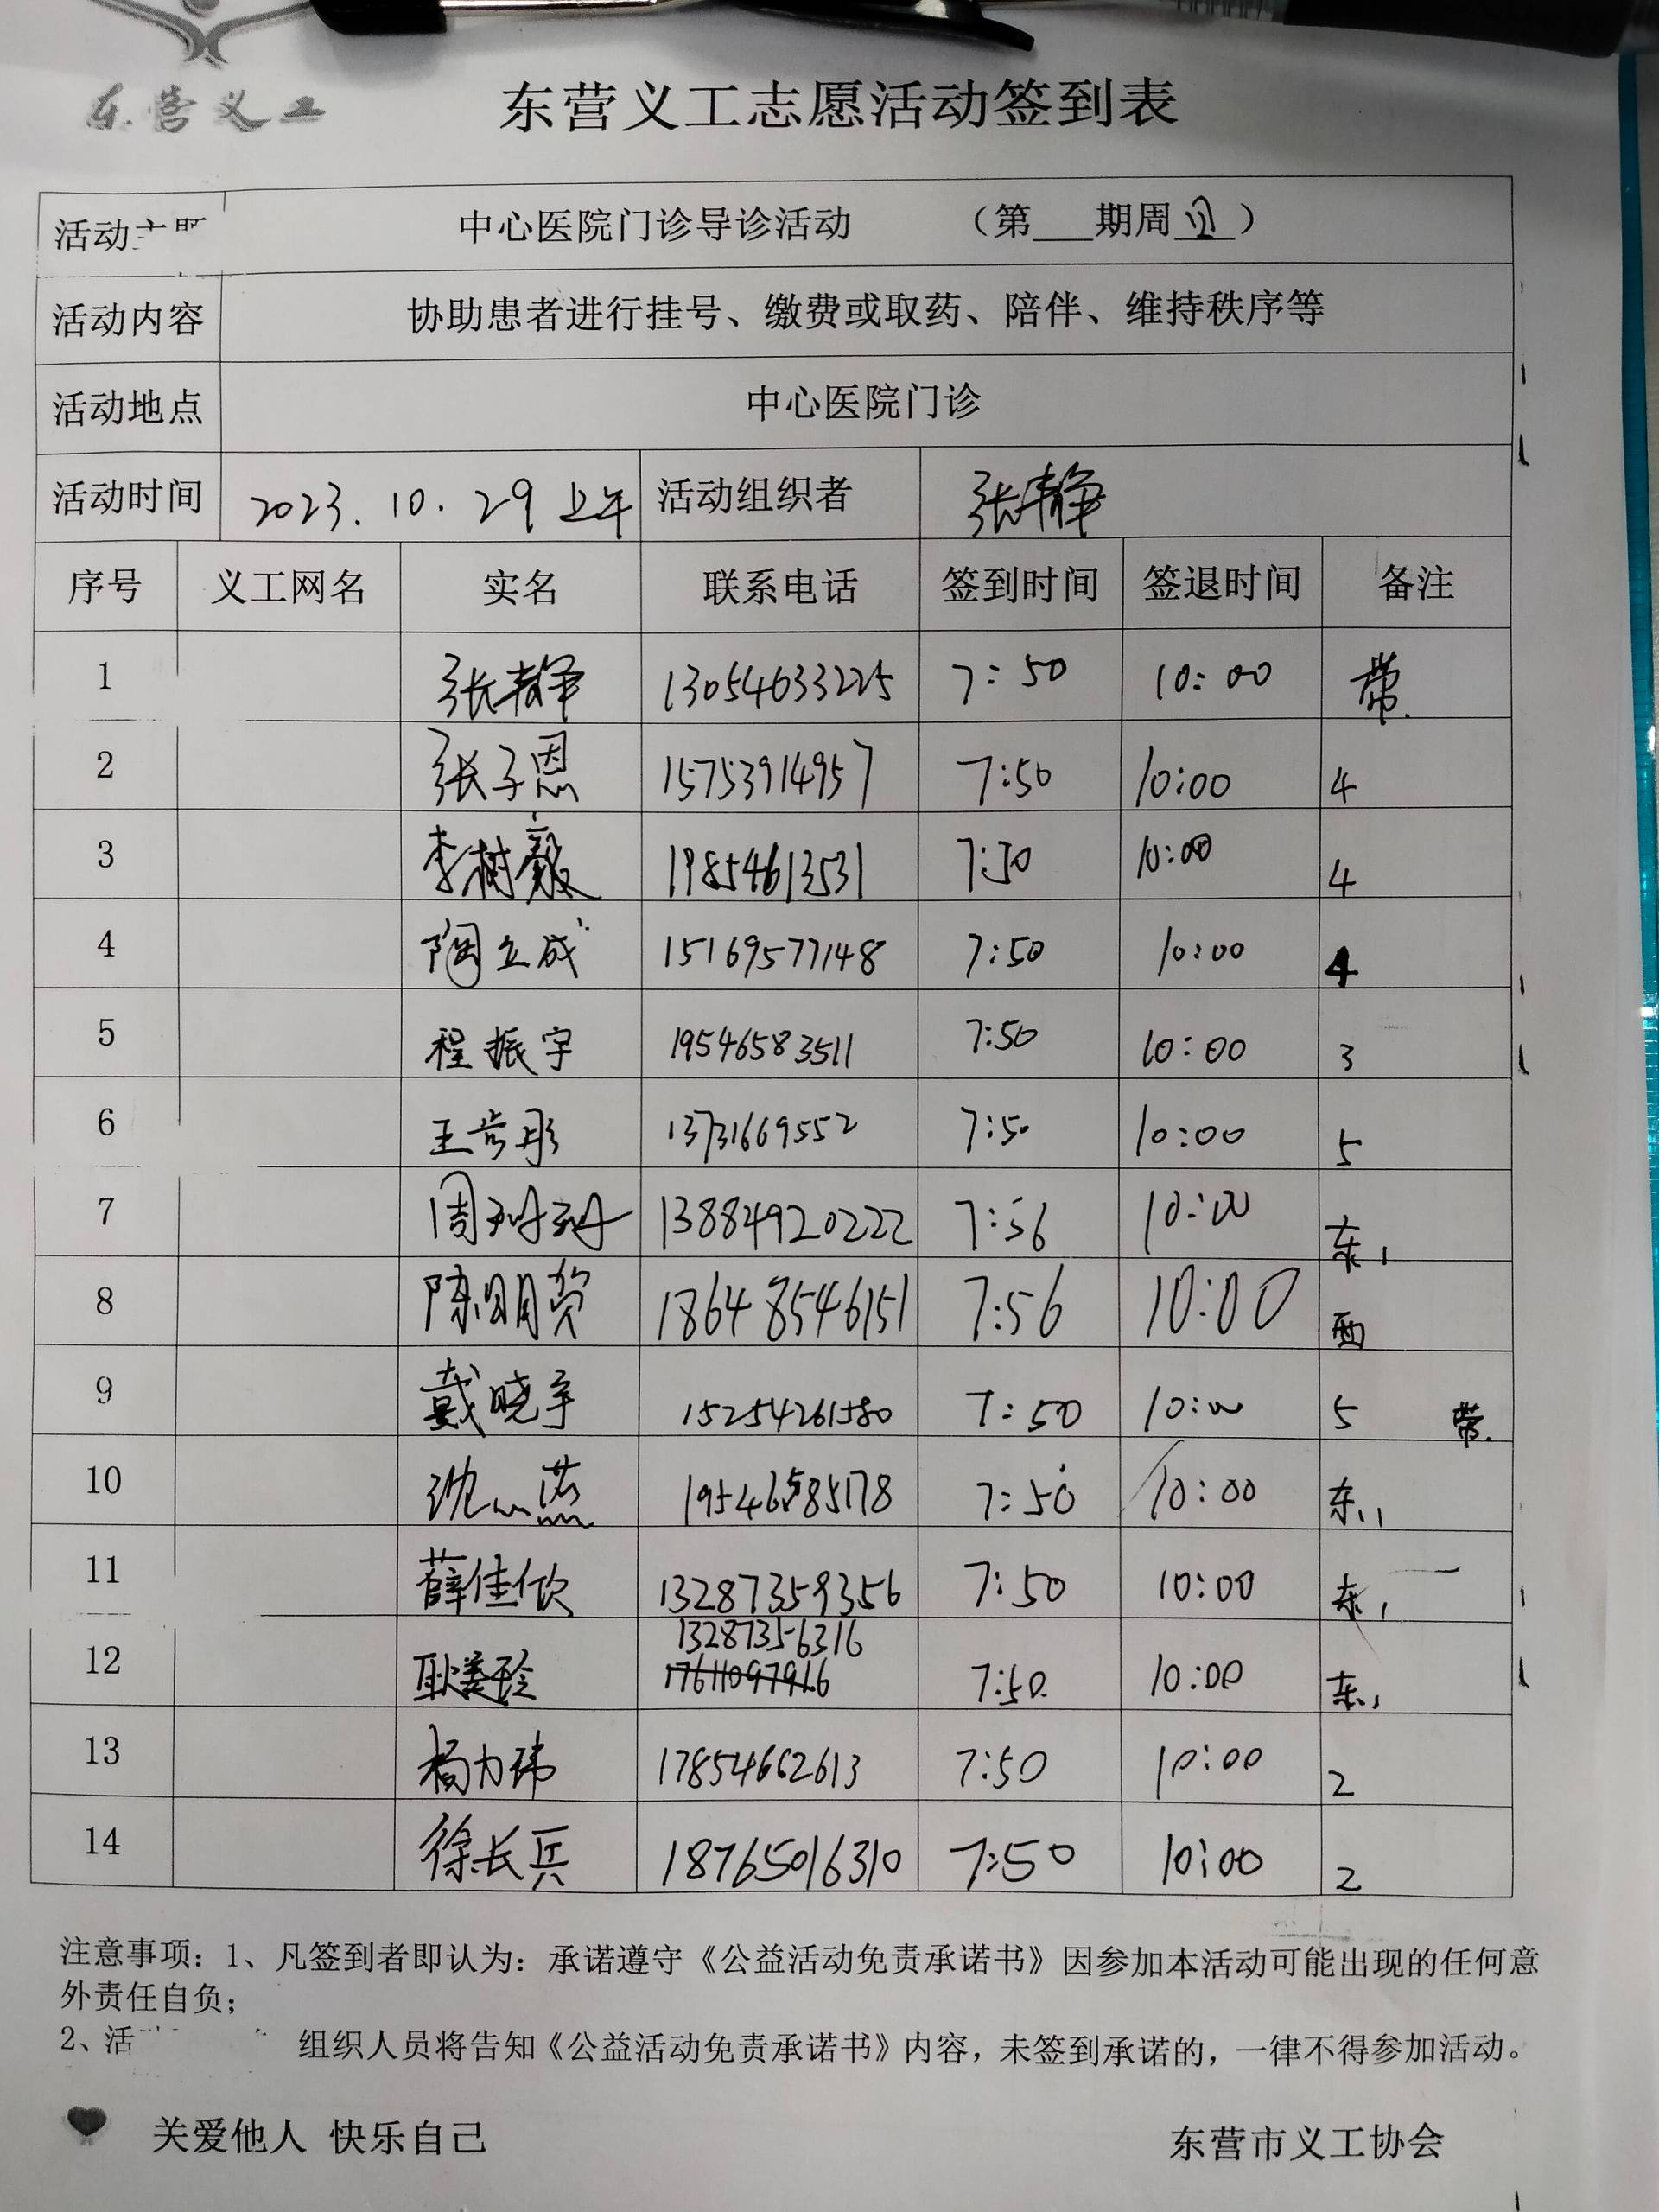 东营义工
东营义工志愿活动签到表
活动主题 中心医院门诊导诊活动 （第___期周日）
活动内容 协助患者进行挂号、缴费或取药、陪伴、维持秩序等
活动地点 中心医院门诊
活动时间 2023.10.29上午 活动组织者 张静
序号 义工网名 实名 联系电话 签到时间 签退时间 备注
1 张静 13054633225 7:50 10:00 带
2 张子恩 15753914957 7:50 10:00 4
3 李树毅 19854613531 7:50 10:00 4
4 陶立成 15169577148 7:50 10:00 4
5 程振宇 19546583511 7:50 10:00 3
6 王 彤 13731669552 7:50 10:00 5
7 周珊珊 13884920222 7:56 10:00 东1
8 陈明贺 18648546151 7:56 10:00 西
9 戴晓宇 15254261580 7:50 10:00 5 带
10 沈心燕 19546585178 7:50 10:00 东1
11 薛佳欣 13287359356 7:50 10:00 东1
13287356316
12 耿美玲 17611097916 7:50 10:00 东1
13 杨力玮 17854662613 7:50 10:00 2
14 徐长兵 18765016310 7:50 10:00 2
注意事项：1、凡签到者即认为：承诺遵守《公益活动免责承诺书》因参加本活动可能出现的任何意
外责任自负；
2、活 组织人员将告知《公益活动免责承诺书》内容，未签到承诺的，一律不得参加活动。
关爱他人 快乐自己 东营市义工协会